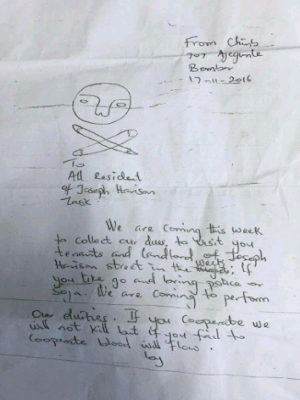 From Chinb
707 Ajegunle
Bomber
17-11-2016
To
All Resident
of Joseph Harison
We are coming this week
to collect our dues, to visit you
tenants and landlord of Joseph
Harison street in the weeks; If
you like go and bring police or
Soja. We are coming to perform
Our duities. If you cooperate we
will not kill but if you fail to
cooperate blood will flow.
by